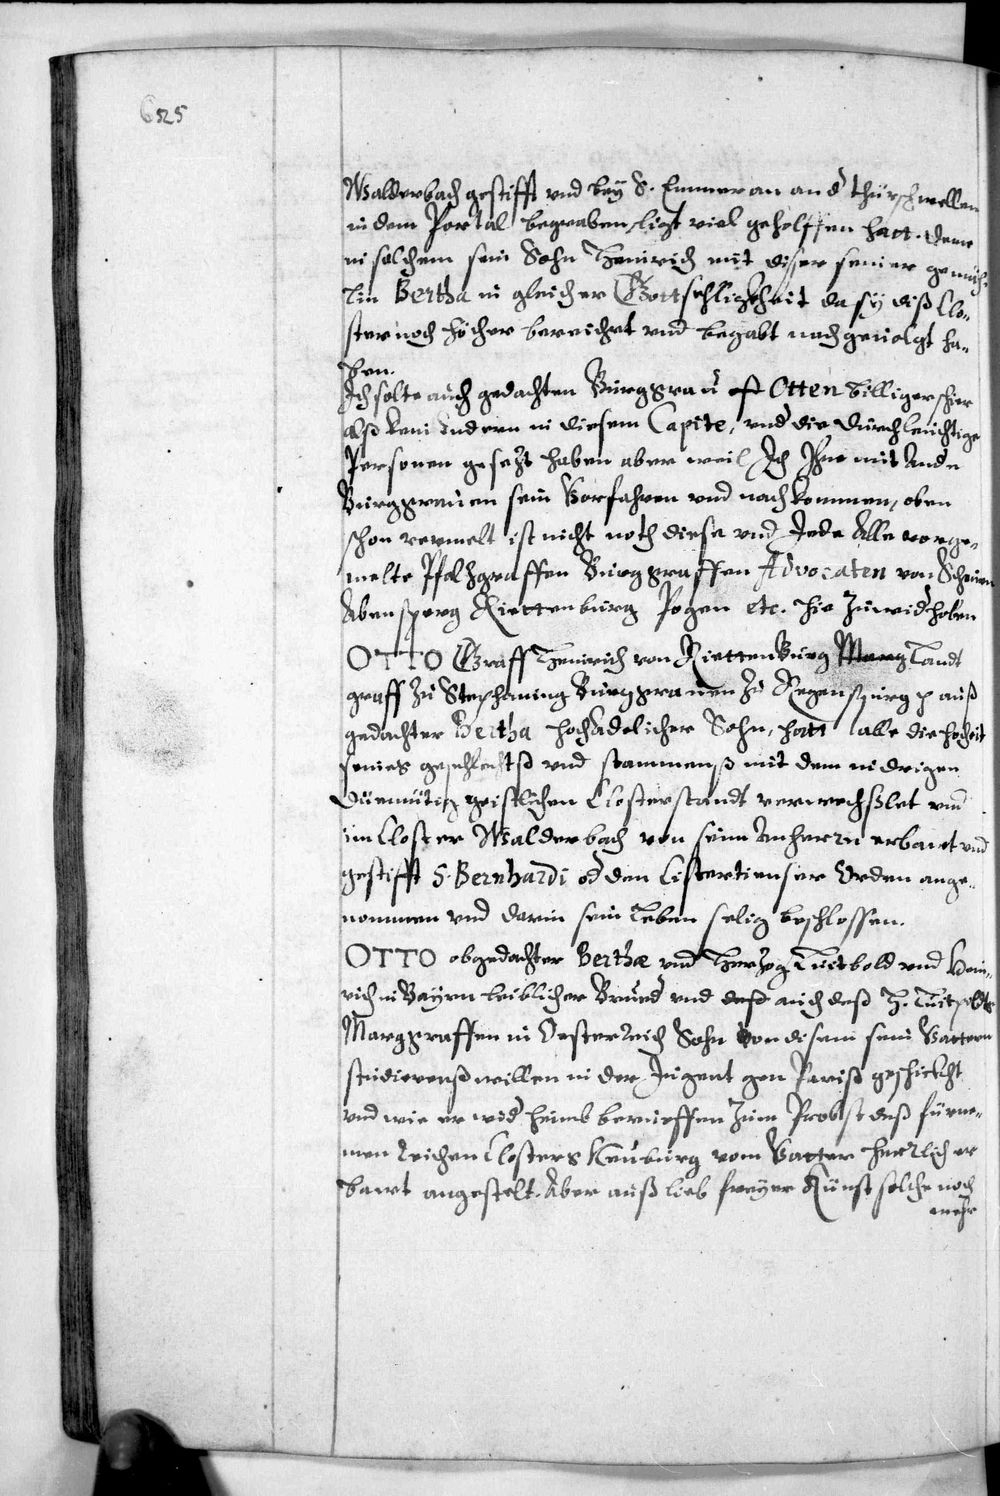 625
Walderbach gestifft vnd bey S. Emmeran an d' thürschwellen
in dem Portal begraben ligt viel geholffen hatt. Deme
in solchem sein Sohn Heinrich mit diser seiner gemäh-
lin Bertha in gleicher Gottsehligkheit da sy diß Clo-
ster noch höcher bereichet vnd begabt nachgeuolgt ha-
ben.
Ich solte auch gedachten Burggrau Otten billiger schier
alß kein Andern in diesem Capite, vnd die Durchleuchtige
Personen gesezt haben aber weil Ich Ihne mit Ande
Burggrauen sein Vorfahren vnd nachkommen, oben
schon vermelt ist nicht noth diese vnd Jede Alle vorge-
melte Pfalzgraffen Burggraffen Advocaten von Scheiern
Abensperg Riettenburg Pogen etc. hie zuwidholen
OTTO Graff Heinrich von Riettenburg Marg Landt
graff zu Stephaning Burggrauen zu Regenspurg p auß
gedachter Bertha hochadelicher Sohn, hatt alle die hocheit
seines geschlechtß vnd stammenß mit dem nidrigen
Düemütig geistlichen Closterstandt verwechßlet vnd
im Closter Walderbach von seim Anherrn erbawt vnd
gestifft S. Bernhardi od' den Cistertienser Orden ange-
nommen vnd darin sein Leben selig beschlossen.
OTTO obgedachter Berthæ vnd Herzog Luitbold vnd Hein-
rich in Bayrn leiblicher Brued' vnd desß auch deß H. Luitpoldts
Marggraffen in Oesterreich Sohn von disem sein Vattern
studierenß willen in der Jugent gen Pariß geschickht
vnd wie er wid' heimb beruoffen zum Probst deß fürne-
men reichen Closters Neuburg vom Vatter herrlich er
bawt angestelt. Aber auß lieb freyer Künst solche noch
mehr